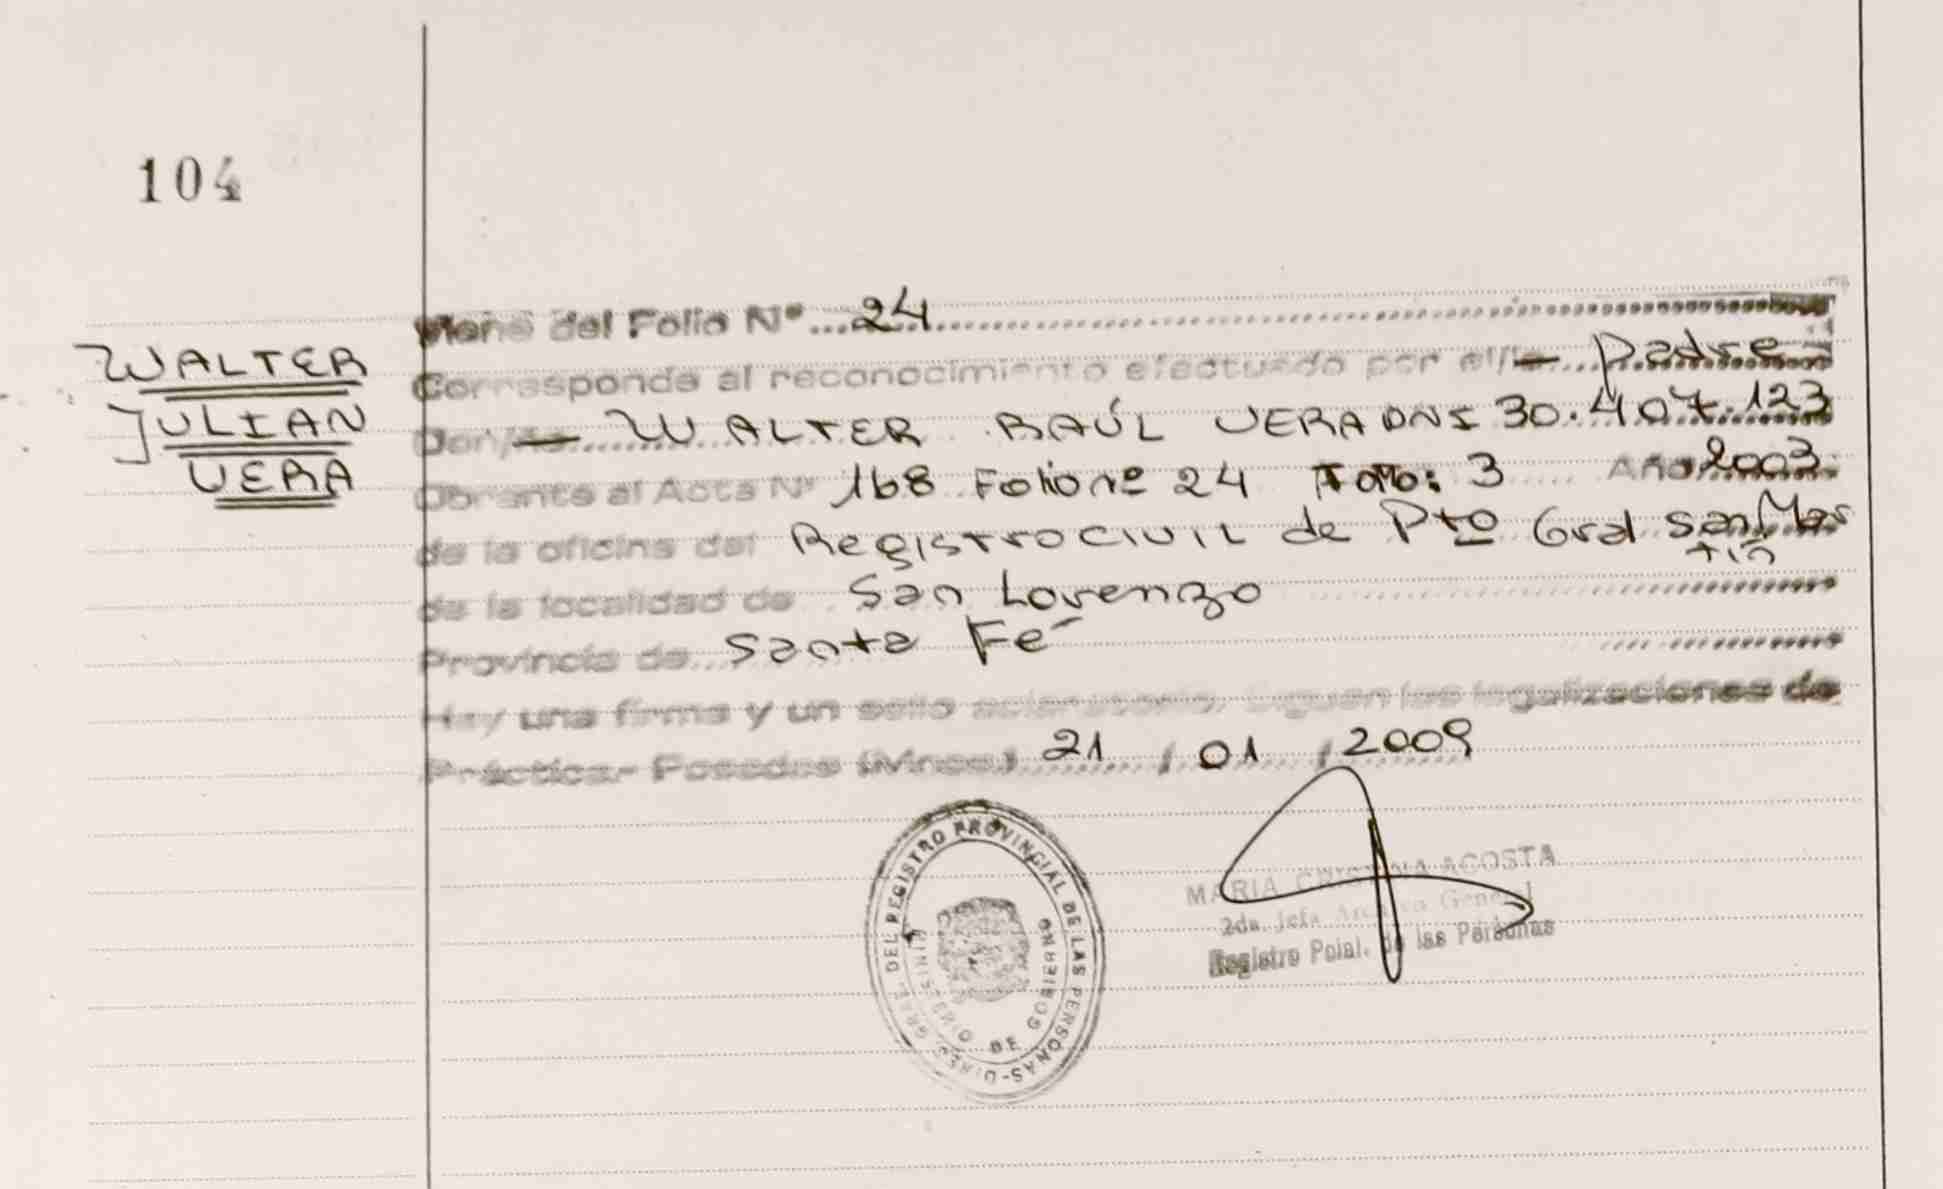 104
WALTER
JULIAN
VERA
Viene del Folio Nº 24
Corresponde al reconocimiento efectuado por el/la Padre
Don/ña WALTER RAÚL VERA DNI 30.407.123
Obrante al Acta Nº 168 Folio nº 24 Tomo: 3 Año 2003.
de la oficina del Registro Civil de Pto Gral San Mar
tin
de la localidad de San Lorenzo
Provincia de Santa Fe
Hay una firma y un sello aclaratorio. Siguen las legalizaciones de
Práctica.- Posadas (Mnes.) 21 / 01 / 2009
DEL REGISTRO PROVINCIAL DE LAS PERSONAS-DIREC. GRAL.
MINISTERIO DE GOBIERNO
MARIA CRISTINA ACOSTA
2da. Jefa Archivo General
Registro Pcial. de las Personas